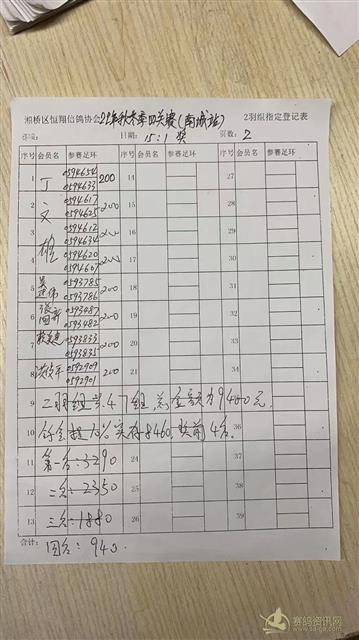 湘桥区恒翔信鸽协会22年秋冬季四关赛(南城站) 2羽组指定登记表
日期: 15:1 奖 页数: 2
序号 会员名 参赛足环 序号 会员名 参赛足环 序号 会员名 参赛足环
1 丁 0594654 0594633 200 14 27
2 文 0594617 0594625 200 15 28
3 雄 0594612 0594634 200 16
4 0594620 0594607 200 17
5 0593785 0593786 200 18
6 0593487 0593482 200 19
7 0593833 0593835 200 20
8 0592909 0592901 200 21 34
9 二羽组共47组,总金额为9400元.
10 10%实存8460,取前4名. 36
11 第一名:3290 24
12 二名:2350 25
13 三名:1880 26 39
合计:
四名:940.
赛鸽资讯网
www.saige.com